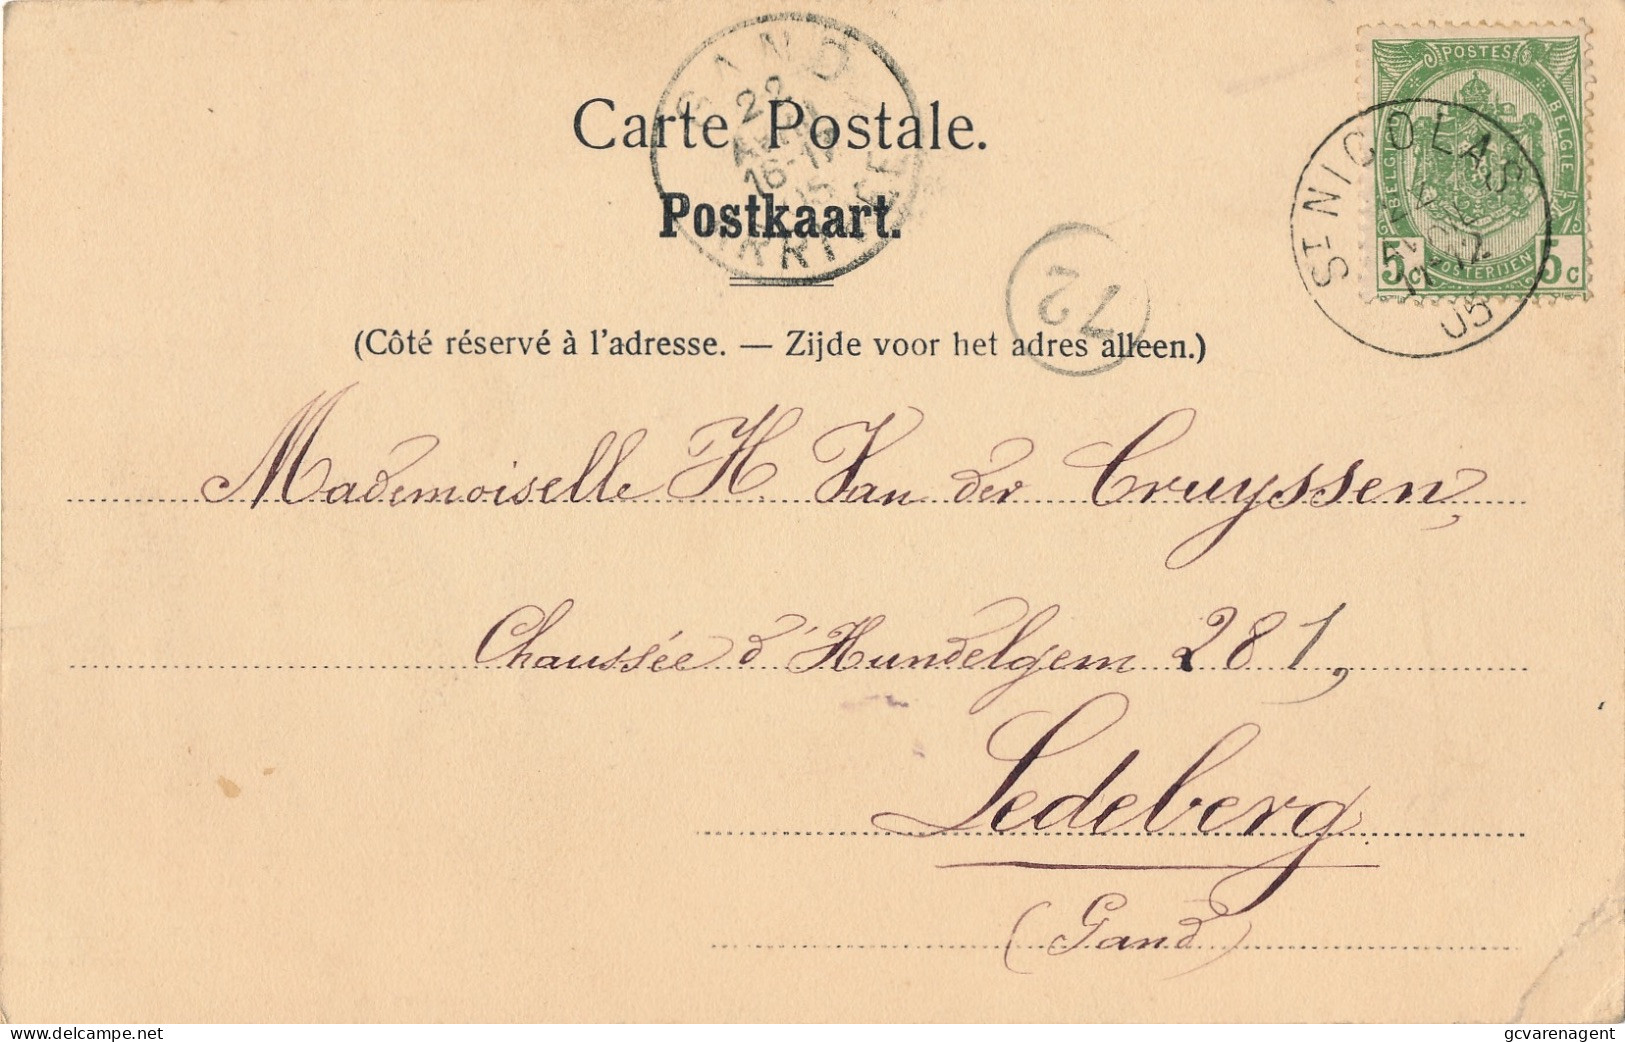 GAND
22
16-17
05
ARRIVÉE
Carte Postale.
Postkaart.
POSTES
BELGIQUE
BELGIE
5c 5c
POSTERIJEN
ST NICOLAS
05
72
(Côté réservé à l'adresse. — Zijde voor het adres alleen.)
Mademoiselle H. Van der Cruyssen,
Chaussée d'Hundelgem 281,
Ledeberg
(Gand)
delcampe.net
gcvarenagent